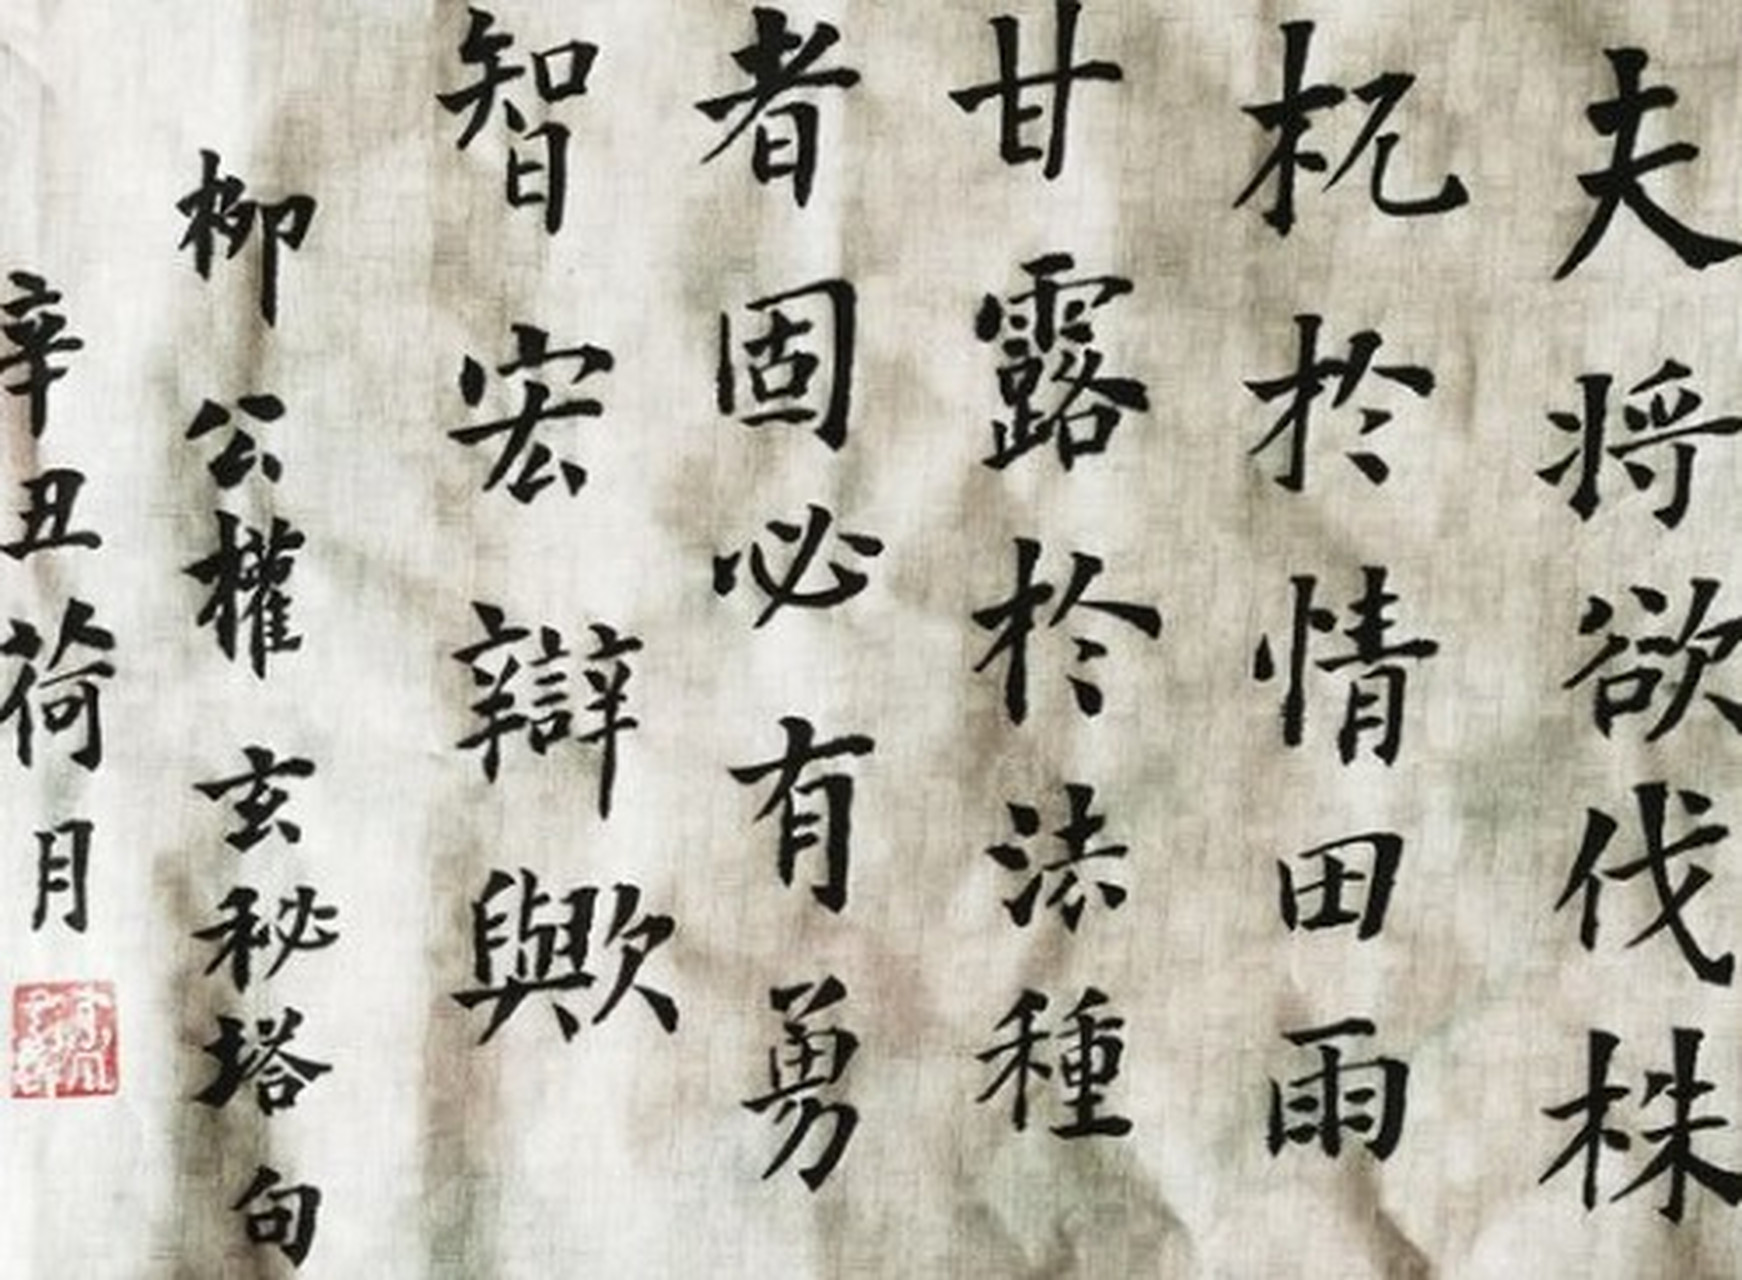 夫将欲伐株
杌於情田雨
甘露於法種
者固必有勇
智宏辯歟
柳公權玄秘塔句
辛丑荷月